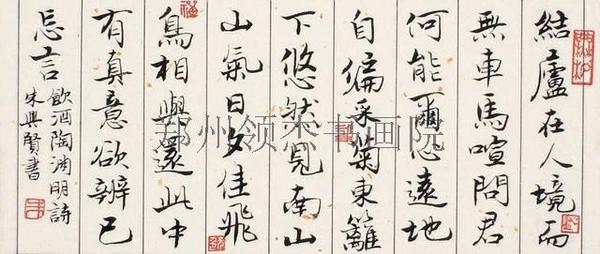 結廬在人境而
無車馬喧問君
何能爾心遠地
自偏采菊東籬
下悠然見南山
山氣日夕佳飛
鳥相與還此中
有真意欲辨已
忘言
飲酒陶渊明詩
朱興賢書
郑州领杰书画院
福